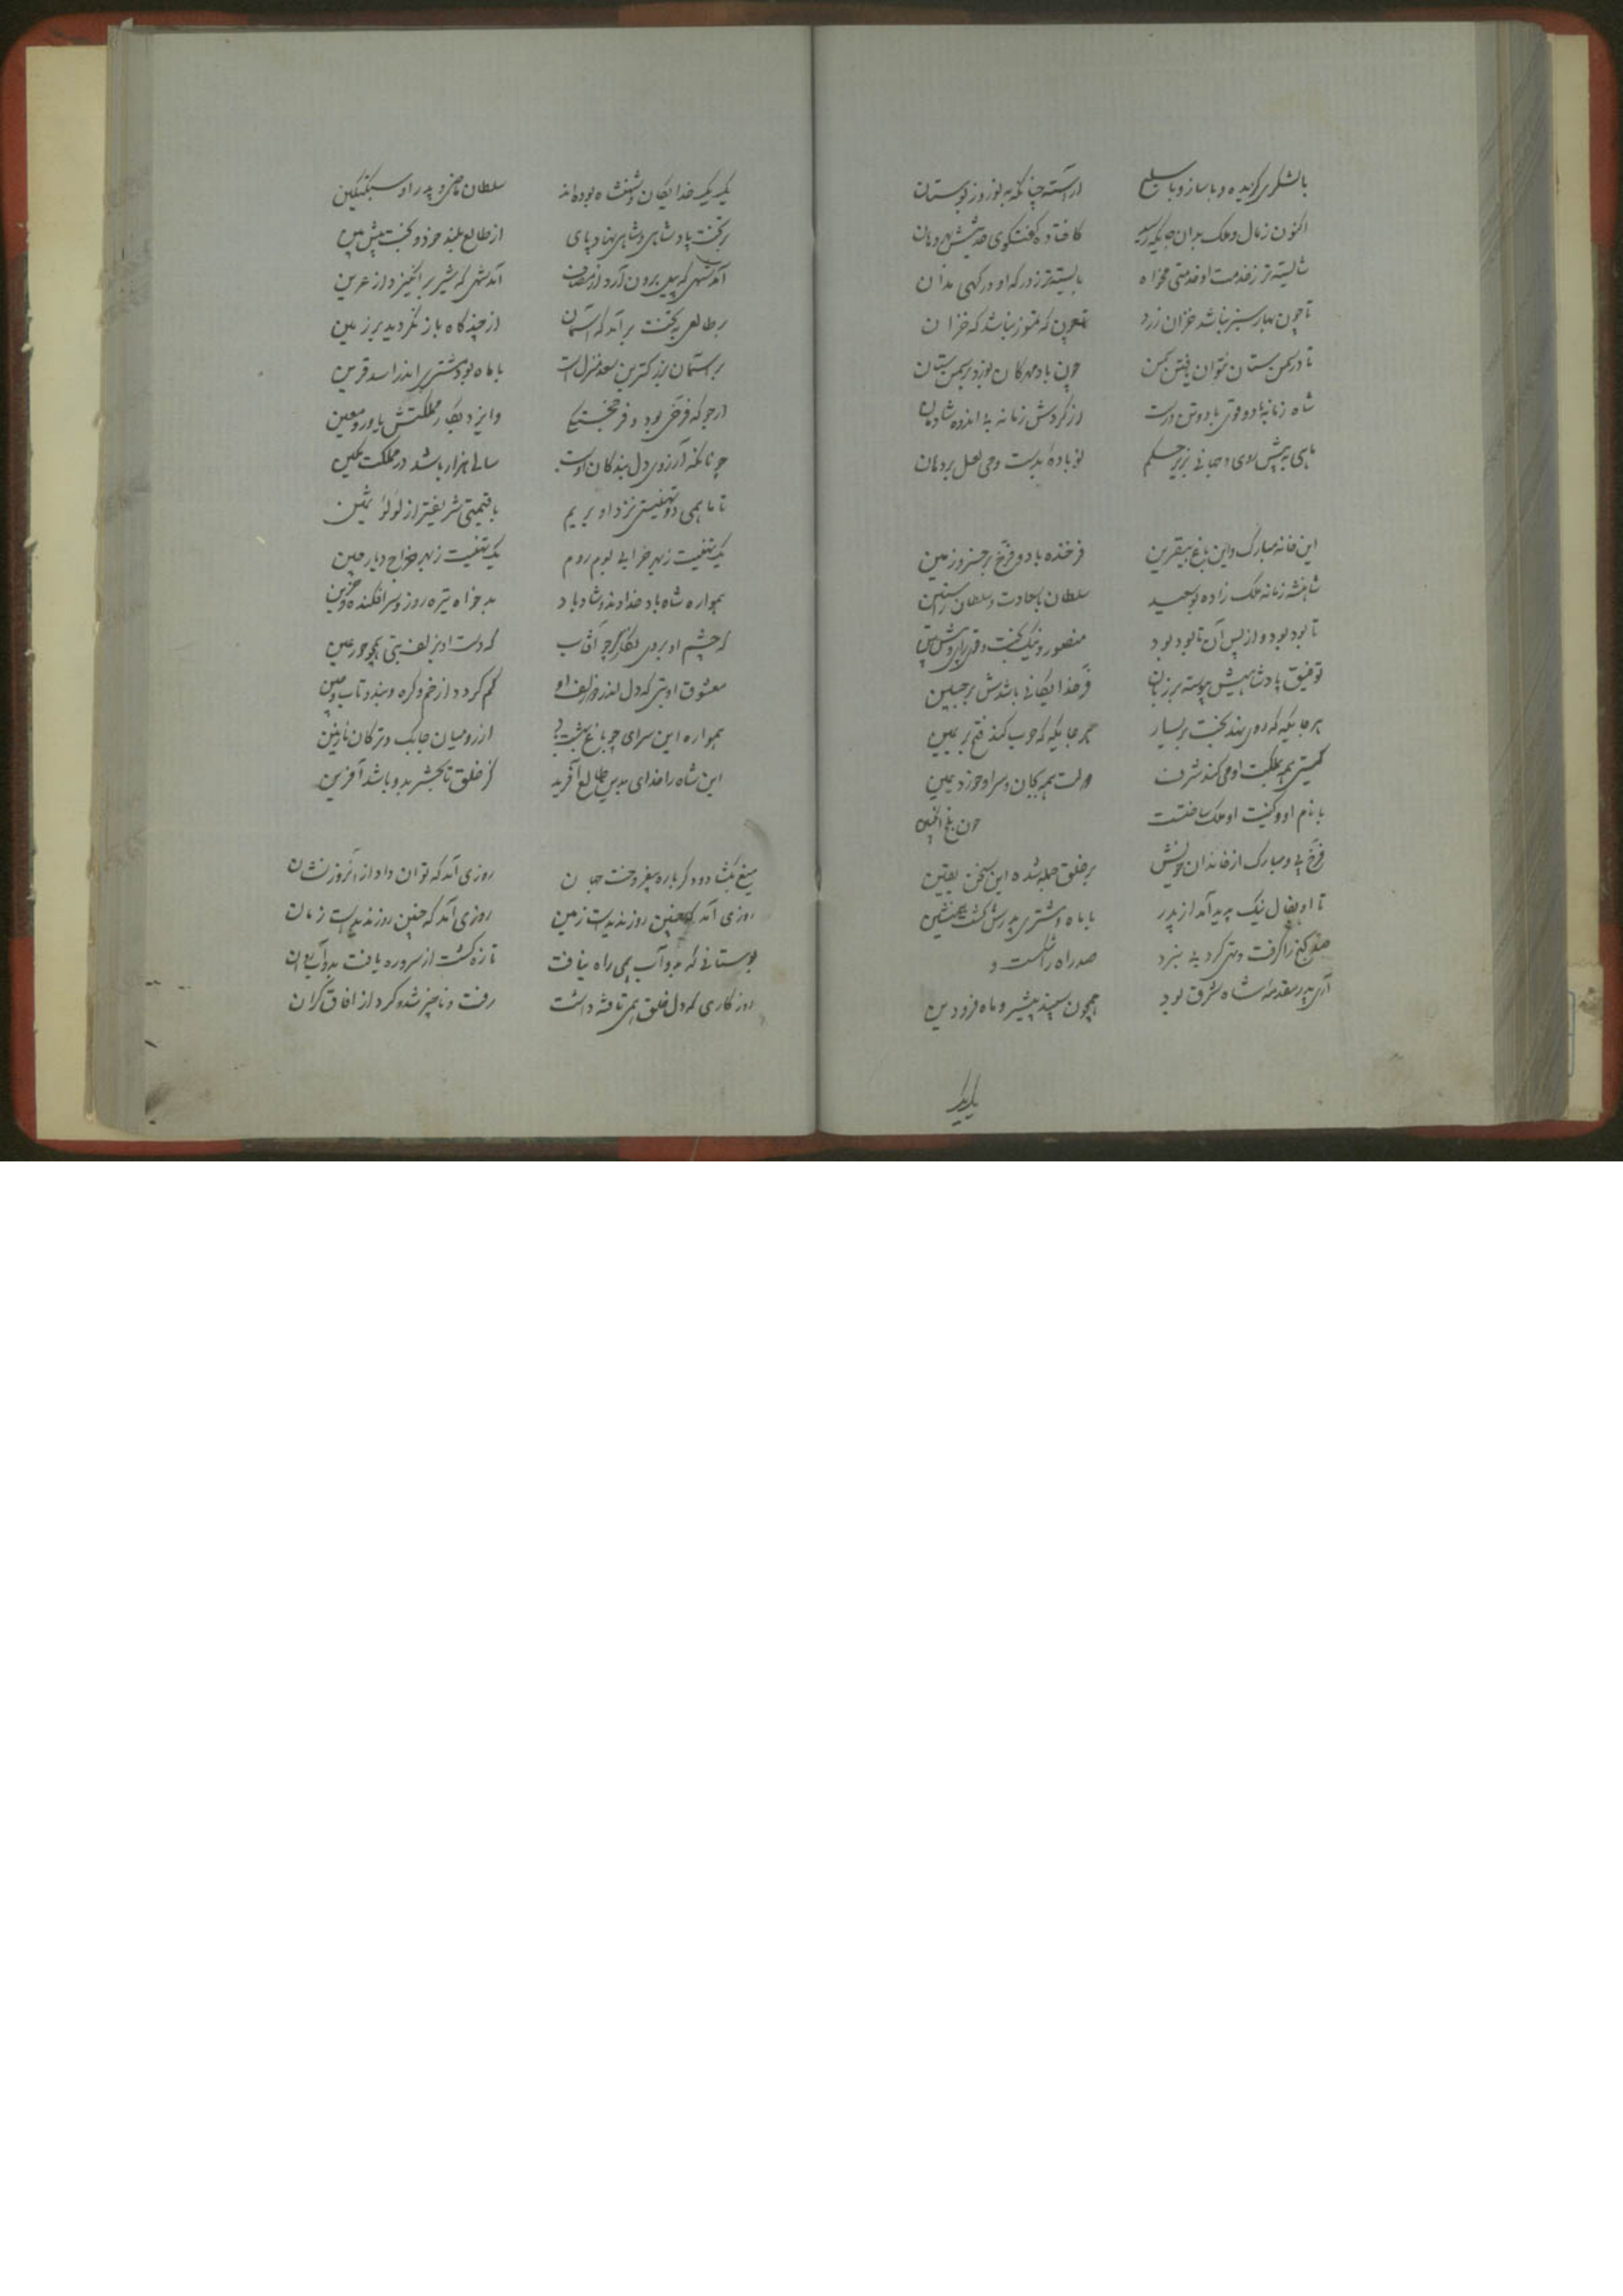 با لشکری گزیده و با ساز و با سلیح آراسته چنانکه به نوروز بوستان
اکنون زمال و ملک بدان جایگه رسید کافتاده گفتگوی حدیثش بهر دهان
شایسته‌تر ز خدمت او خدمتی مخواه بایسته‌تر ز درگه او درگهی مدان
تا چون بهار سبز نباشد خزان زرد که خزان
تا در سمن ستان نتوان یافتن سمن چون باد مهرگان بوزد بر سمن ستان
شاه زمانه باد و قوی باد و تن درست از گردش زمانه بی‌اندوه شادمان
ماهی به پیش روی و جهانی بزیر حکم تو باده بدست و می لعل بر دهان
این خانه مبارک و این باغ بیقرین فرخنده باد و فرخ بر خسرو زمین
شاهنشه زمانه ملک زاده بوسعید سلطان با سعادت و سلطان راستین
تا بود بود و از پس آن تا بود بود منصور و نیک بخت و
توفیق پادشاهیش پیوسته بر زبان فر خدایگانی باشدش بر جبین
هر جایگه که روی نهد بخت بر یسار هر جایگه که حرب کند فتح بر یمین
گیتی همه بملکت او می کند شرف دولت همه بجان و سر او خورد یمین
با نام او و کنیت او ملک ساختست چون
فرخ پی و مبارک از خاندان خویش بر خلق جمله شده این سخن یقین
تا او بفال نیک پدید آمد از پدر با ماه و مشتری پدرش گشت همنشین
صد گنج را گرفت و تهی کرد بی نبرد صد راه را شکست و
آری پدر مقدمه شاه شرق بود همچون سپید پیشرو ماه فرودین
یک یک
یک یک خدایگان و شهنشاه بوده‌اند سلطان ماضی و پدر او سبکتکین
بر تخت پادشاهی و شاهی نهاد پای از طالع بلند خود و بخت پیش بین
آمد شهی که پیل برون آرد از مصاف آمد شهی که شیر بر انگیزد از عرین
بر طالعی به تخت بر آمد که آسمان از چند گاه باز نگردید بر زمین
بر آسمان بزرگترین سعد منزل است با ماه بود و مشتری اندر اسد قرین
ارجو که فرخی بود و فر خجستگی و ایزد بکار مملکتش یاور و معین
چونانکه آرزوی دل بندگان اوست سالی هزار باشد در مملکت مکین
تا ما همی دو تهنیتی نزد او بریم با قیمتی شریفتر از لؤلؤ ثمین
یک تهنیت زبهر خرابی بوم روم یک تهنیت زبهر خراج دیار چین
همواره شاه باد خداوند و شاد باد بد خواه تیره روز و سر افکنده و حزین
گه چشم او بروی نگاری چو آفتاب گه دست او بزلف بتی همچو حور عین
معشوق او بتی که دل اندر دو زلف او گم گردد از خم و گره و بند و تاب و چین
همواره این سرای چو باغ بهشت باد از رومیان چابک و ترکان نازنین
این شاه را خدای بدین طالع آفرید کز خلق تا بحشر بدو باشد آفرین
میغ بگشاد و دگر باره بیفروخت جهان روزی آمد که توان داد از آنروز نشان
روزی آمد که چنین روز ندیدست زمین روزی آمد که چنین روز ندیدست زمان
بوستانی که بدو آب همی راه نیافت تازه گشت از سر و ره یافت بدو آب روان
روزگاری که دل خلق همی تافته داشت رفت و ناچیز شد و کرد از آفاق کران